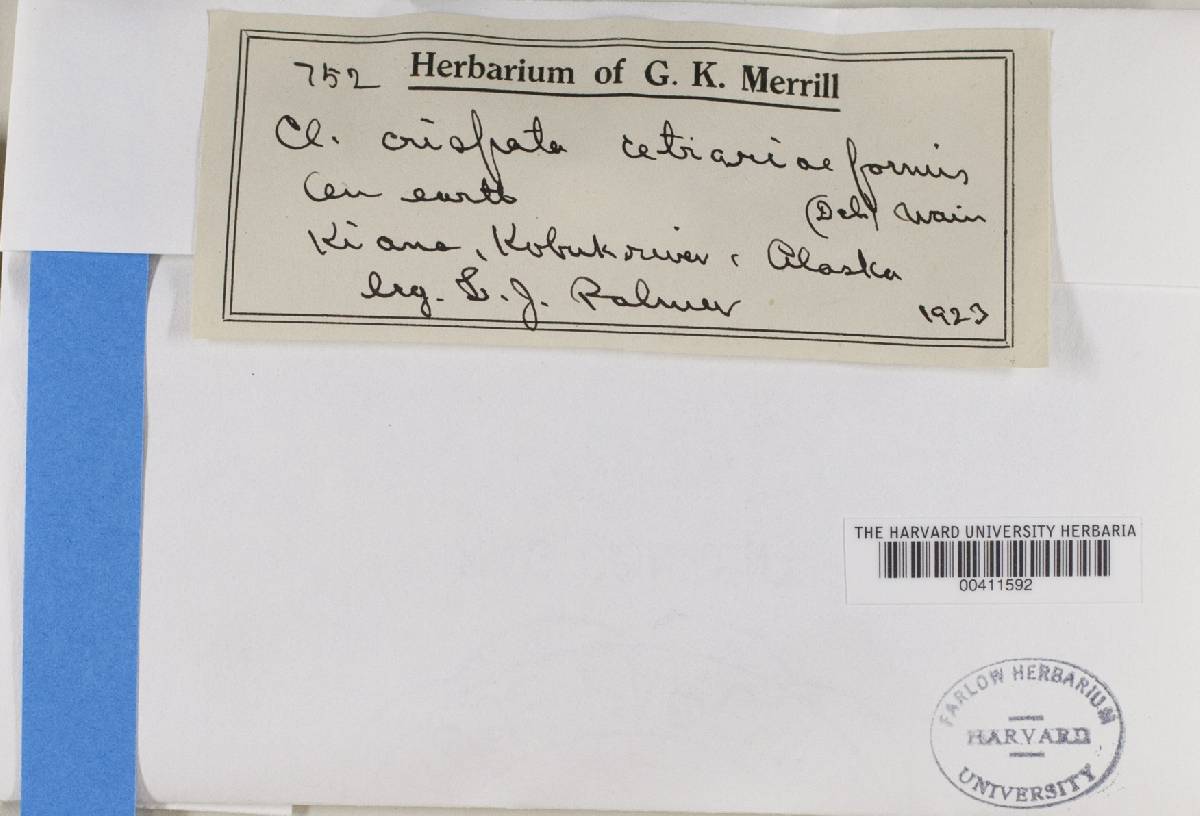 752 Herbarium of G. K. Merrill
Cl. crispata cetrariaeformis
On earth (Del) Wain
Kiana, Kobuk river, Alaska
leg. L. J. Palmer 1923
THE HARVARD UNIVERSITY HERBARIA
00411592
FARLOW HERBARIUM
HARVARD
UNIVERSITY